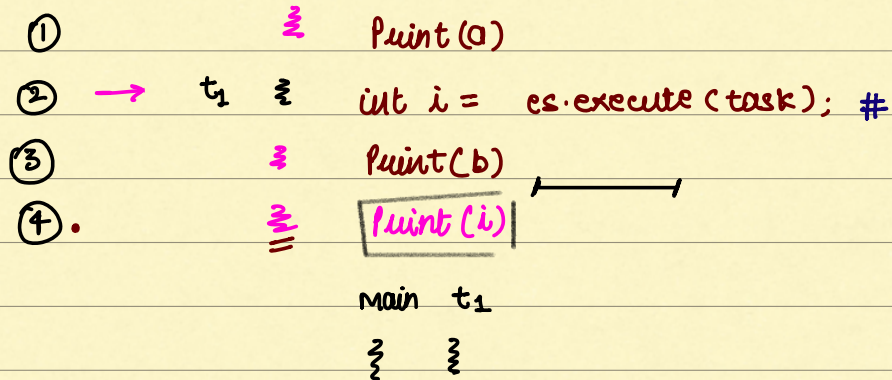 ① Print(a)
② → t1 int i = es.execute(task); #
③ Print(b)
④. Print(i)
main t1